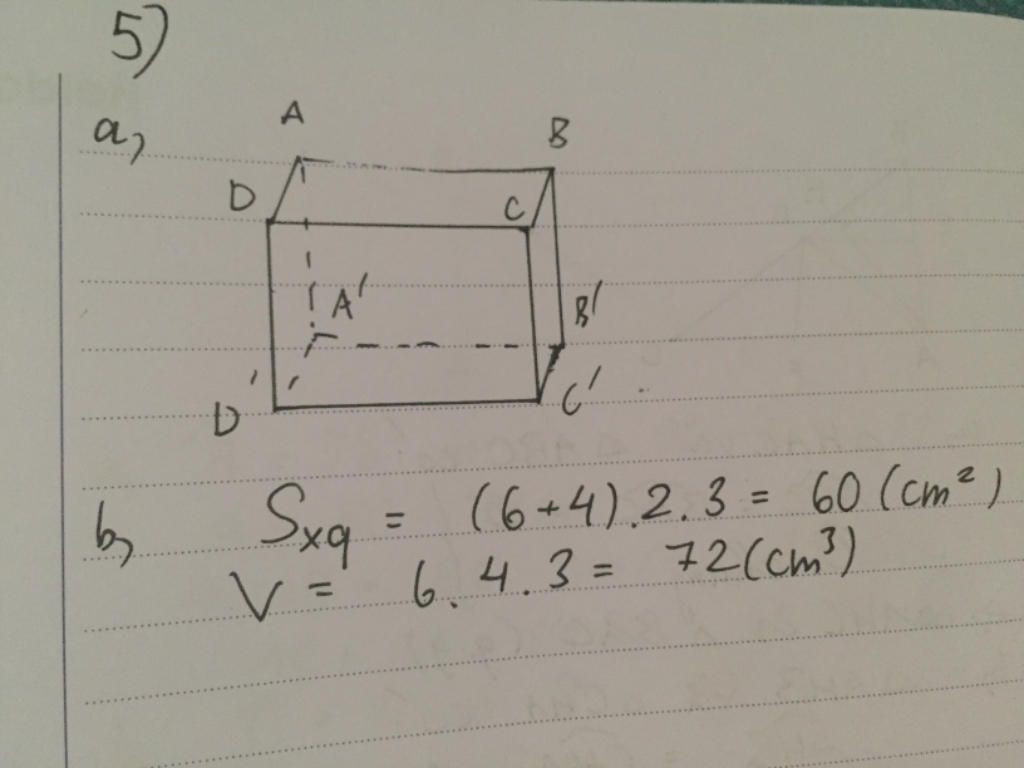 5)
a,
A
B
D
C
A'
B'
D'
C'
b, Sxq = (6+4).2.3 = 60 (cm²)
V = 6.4.3 = 72 (cm³)